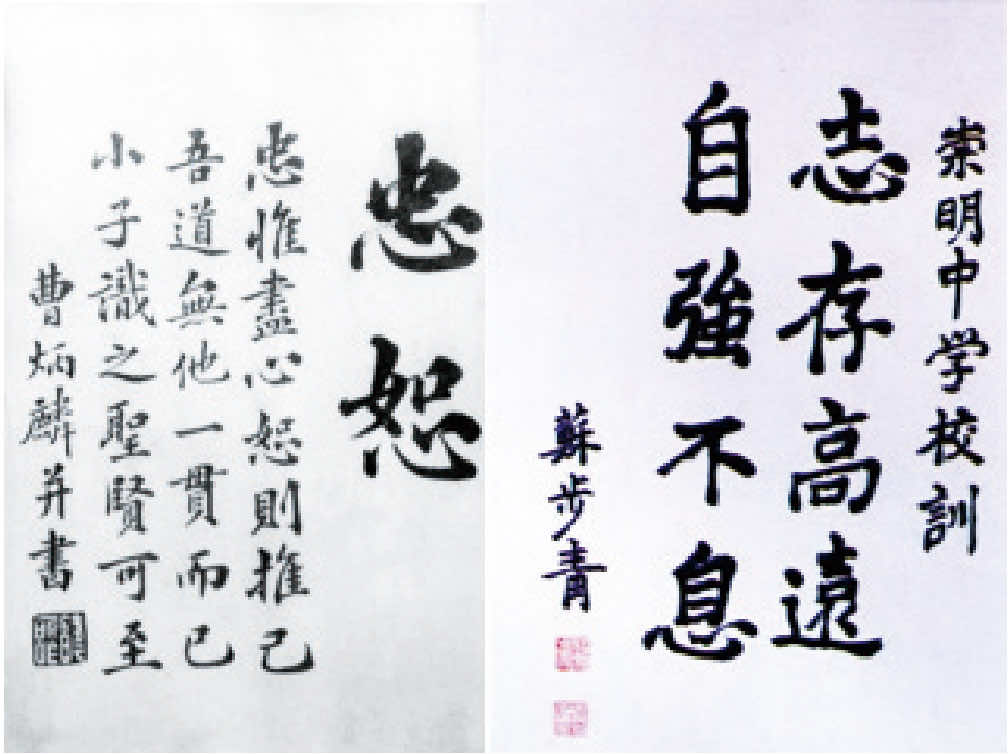 崇明中学校訓
志存高遠
自強不息
蘇步青
忠恕
忠惟盡心恕則推己
吾道無他一貫而已
小子識之聖賢可至
曹炳麟并書